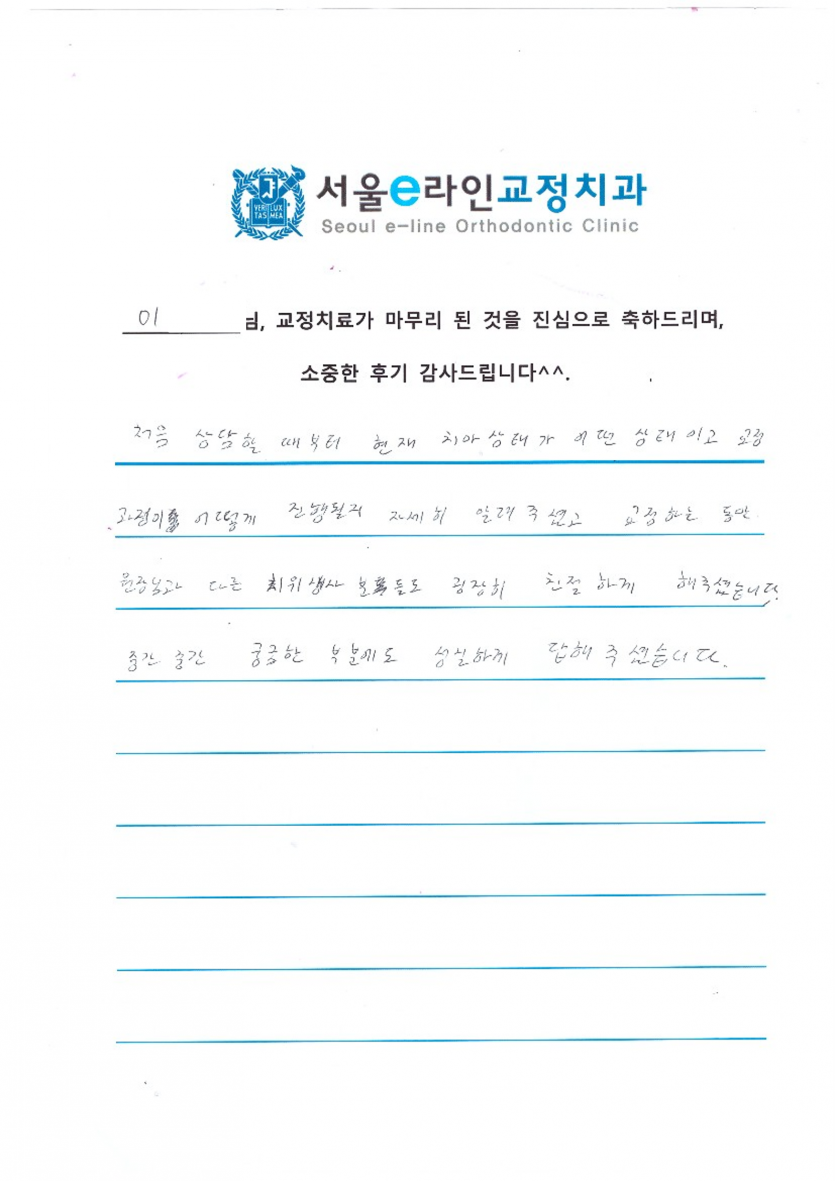 서울e라인교정치과
Seoul e-line Orthodontic Clinic
VERI LUX
TAS MEA
이 님, 교정치료가 마무리 된 것을 진심으로 축하드리며,
소중한 후기 감사드립니다^^.
처음 상담할 때부터 현재 치아상태가 어떤 상태이고 교정
과정이 어떻게 진행될지 자세히 알려주셨고 교정하는 동안
원장님과 다른 치위생사 분들도 굉장히 친절하게 해주셨습니다.
중간 중간 궁금한 부분에도 성실하게 답해주셨습니다.